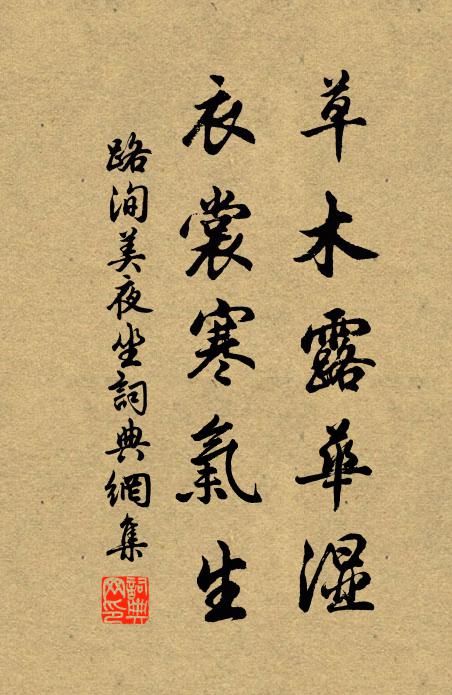 草木露華湿
衣裳寒氣生
路洵美夜坐詞典網集
詞典網印